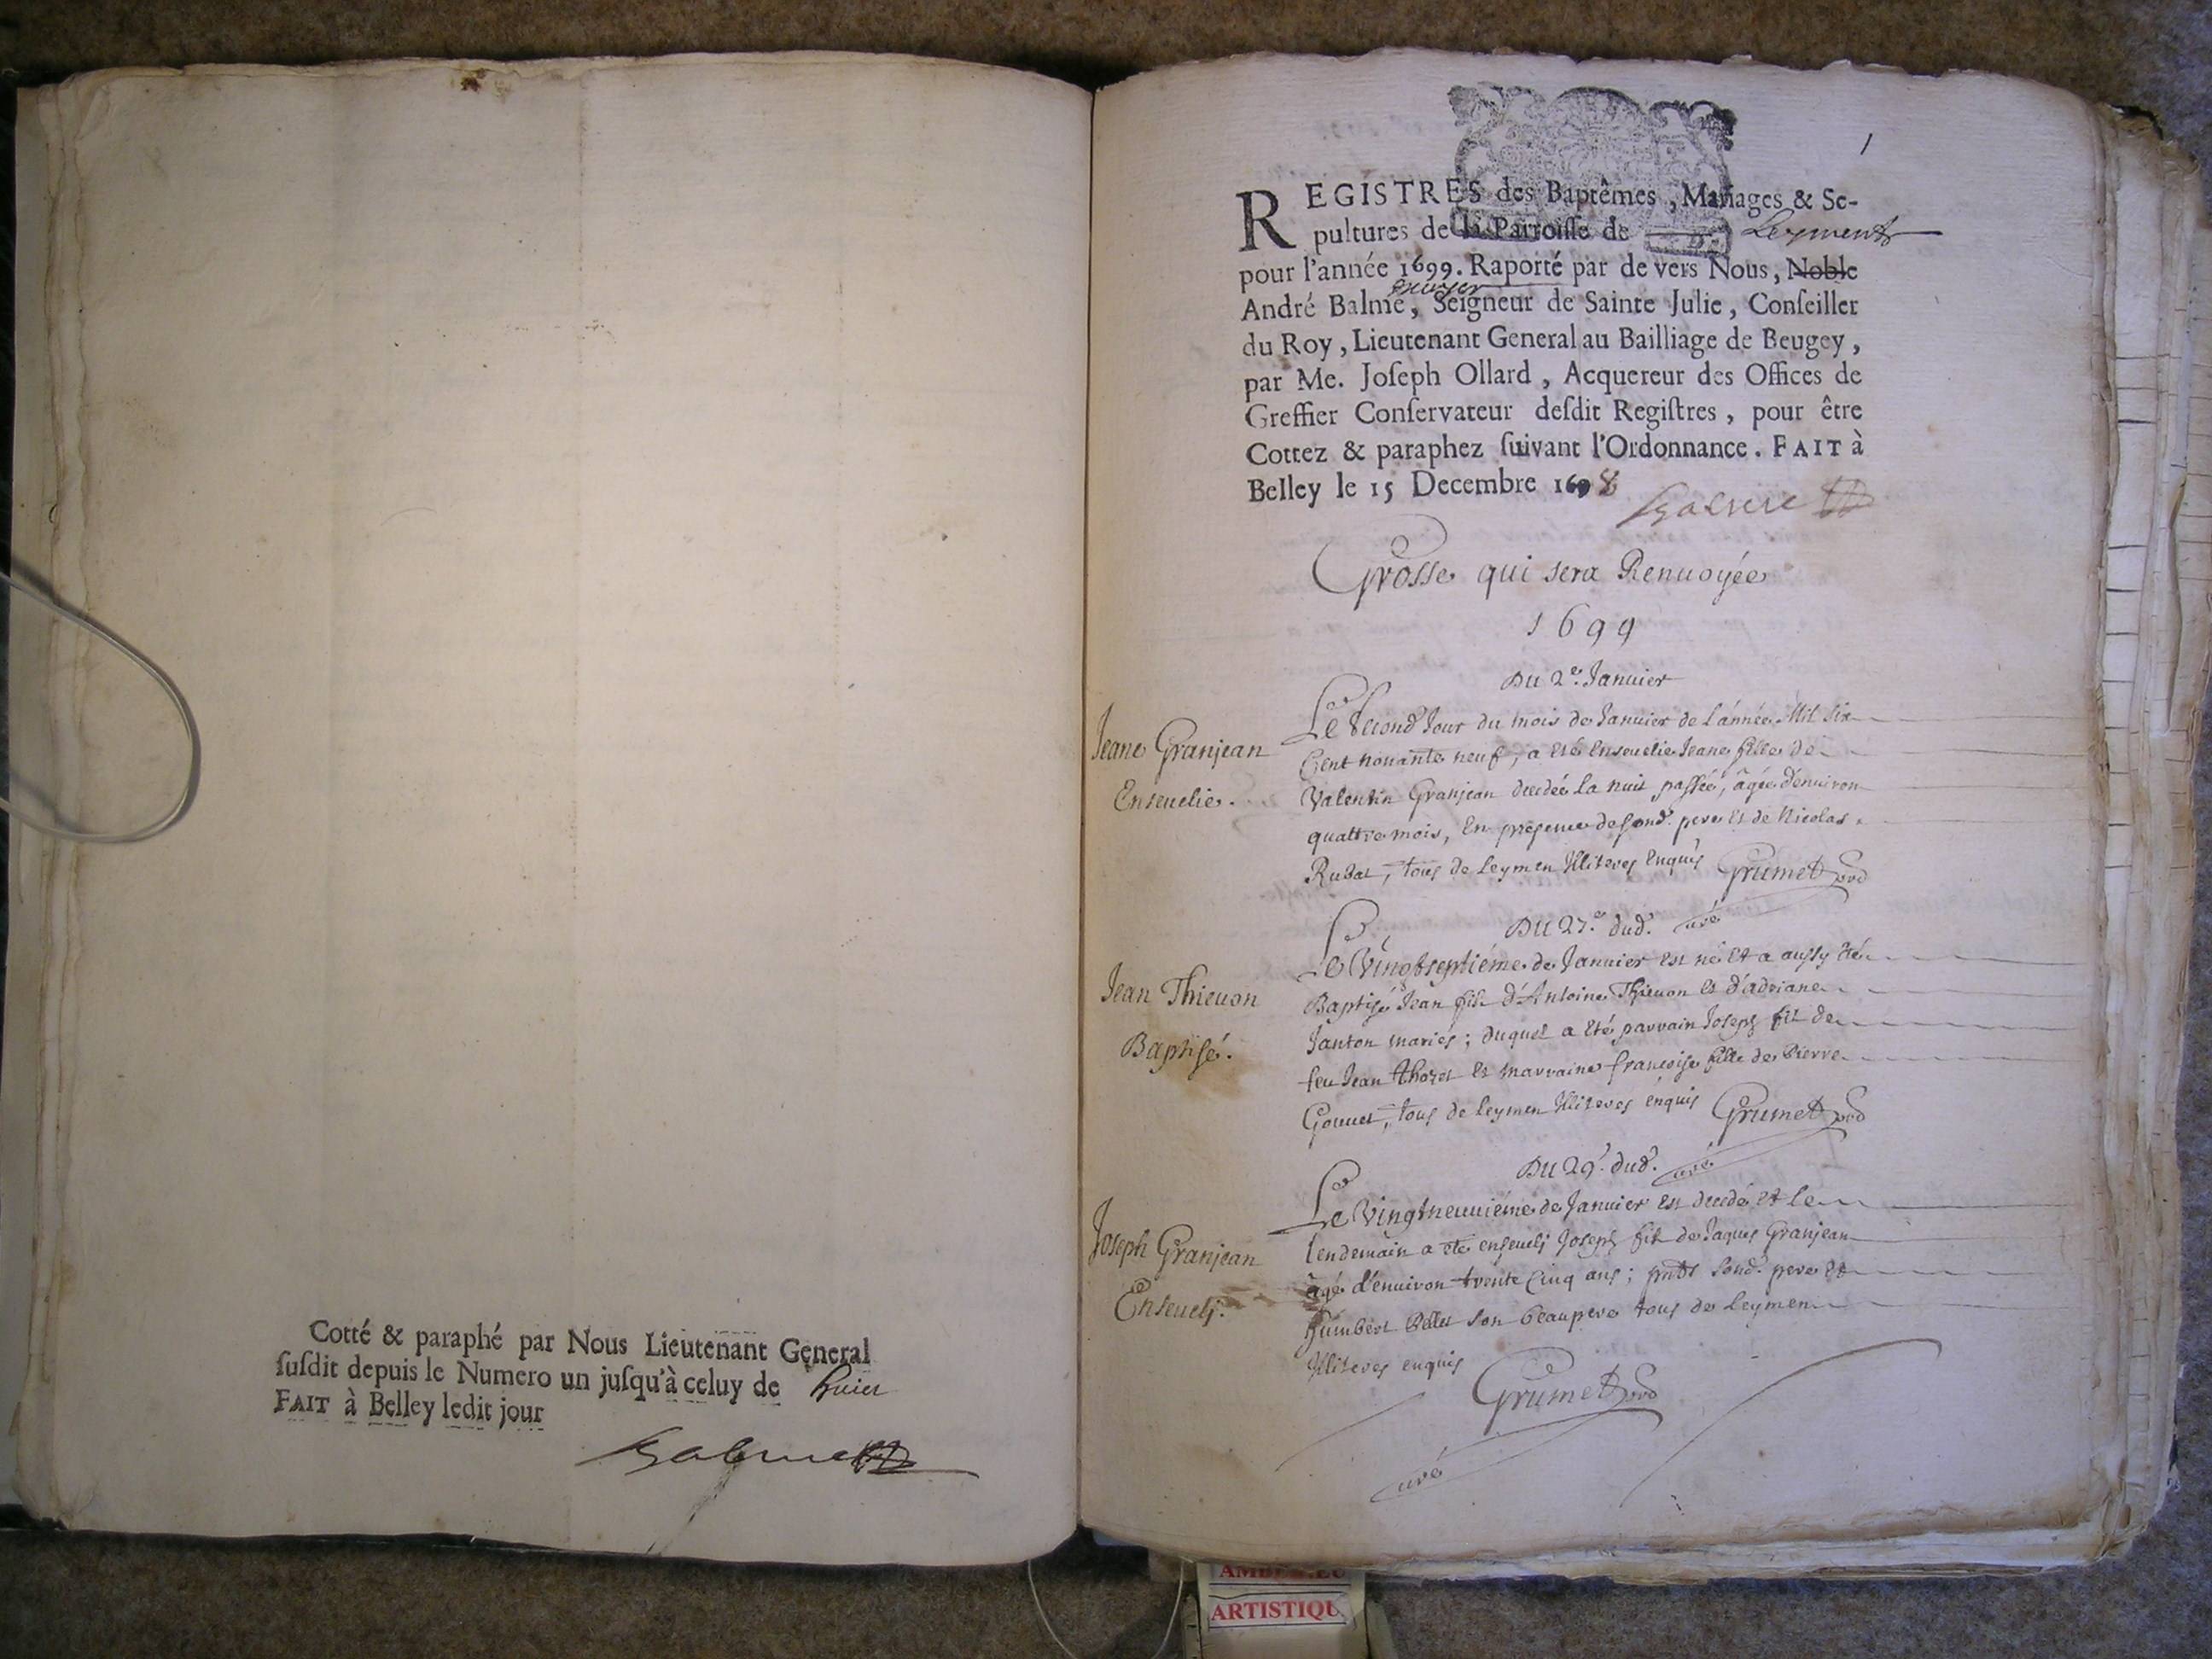 Cotté & paraphé par Nous Lieutenant General
susdit depuis le Numero un jusqu'à celuy de huict
FAIT à Belley ledit jour
Balme
1
REGISTRES des Baptêmes, Mariages & Se-
pultures de la Parroisse de Leyment
pour l'année 1699. Raporté par de vers Nous, Noble
escuyer
André Balme, Seigneur de Sainte Julie, Conseiller
du Roy, Lieutenant General au Bailliage de Beugey,
par Me. Joseph Ollard, Acquereur des Offices de
Greffier Conservateur desdit Registres, pour être
Cottez & paraphez suivant l'Ordonnance. FAIT à
Belley le 15 Decembre 1698
Balme
Grosse qui sera Renuoyée
1699
Du 2e. Januier
Jeane Granjean
Enseuelie.
Le second Jour du mois de Januier de l'année Mil six
Cent nonante neuf, a eté Enseuelie Jeane fille de
Valentin Granjean decedée la nuit passée, âgée d'enuiron
quattre mois, En presence de sond. pere et de Nicolas
Rubat, tous de Leymen Illiteres Enquis Grumet
curé
Du 27e. dud.
Jean Thieuon
Baptisé.
Le Vingtseptiéme de Januier est né et a aussy eté
Baptisé Jean fils d'Antoine Thieuon et d'adriane
Janton mariés; duquel a eté parrain Joseph fils de
feu Jean thozet et marraine francoise fille de Pierre
Gonnet, tous de Leymen Illiteres enquis Grumet
curé
Du 29e. dud.
Joseph Granjean
Enseuely.
Le Vingtneuuiéme de Januier est decedé et le
lendemain a eté enseuely Joseph fils de Jaques Granjean
âgé d'enuiron trente cinq ans; pnts sond. pere et
humbert Bellet son beaupere tous de Leymen
Illiteres enquis Grumet
curé
ARTISTIQU